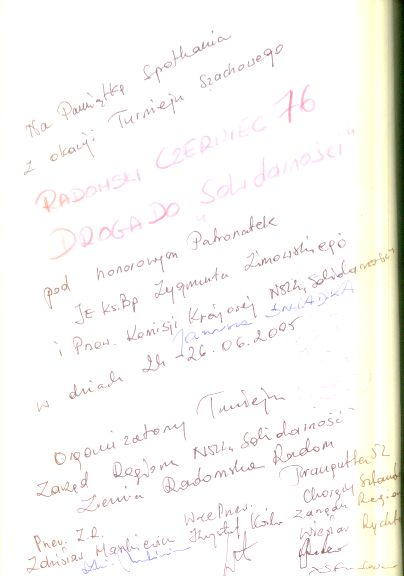 Na Pamiątkę Spotkania
z okazji Turnieju Szachowego
RADOMSKI CZERWIEC 76
DROGA DO „Solidarności"
pod honorowym Patronatek
JE ks. Bp Zygmunta Zimowskiego
i Przew. Komisji Krajowej NSZZ „Solidarność"
Janusza ŚNIADKA
w dniach 24-26.06.2005
Organizatorzy Turnieju
Zarząd Regionu NSZZ „Solidarność"
Ziemia Radomska Radom
Traugutta 52
Przew. Z.R. Wice Przew. Chorąży Sztandaru
Zdzisław Krzysztof Zarządu Regionu
Wiesław